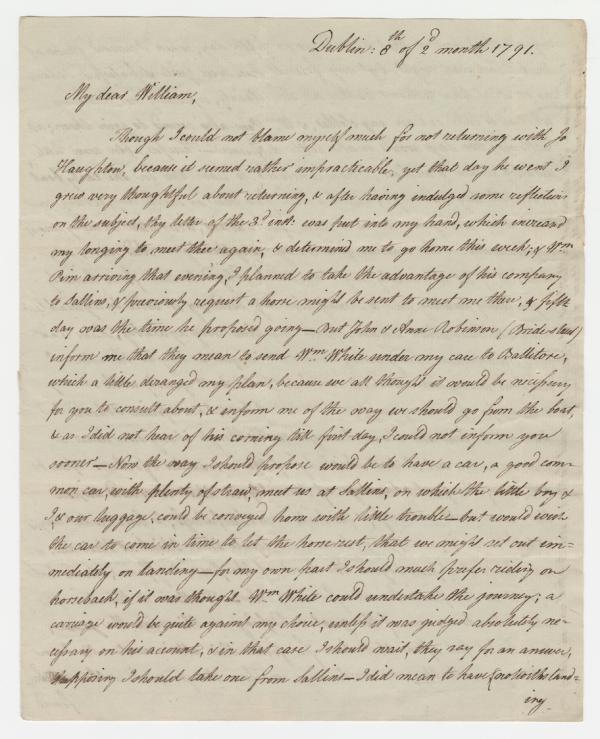 Dublin: 8th of 2d month 1791.
My dear William,
Though I could not blame myself much for not returning with Jo
Haughton, because it seemed rather impracticable, yet that day he went I
grew very thoughtful about returning, & after having indulged some reflections
on the subject, thy letter of the 3d inst: was put into my hand, which increased
my longing to meet thee again, & determined me to go home this week; & Wm
Pim arriving that evening, I planned to take the advantage of his company
to Sallins, & previously request a horse might be sent to meet me there, & fifth
day was the time he proposed going — but John & Anne Robinson (Bride street)
inform me that they mean to send Wm White under my care to Ballitore,
which a little deranged my plan, because we all thought it would be necessary
for you to consult about, & inform me of the way we should go from the boat,
& as I did not hear of his coming till first day, I could not inform you
sooner — Now the way I should propose would be to have a car, a good com=
mon car, with plenty of straw, meet us at Sallins, on which the little boy &
I, & our luggage, could be conveyed home with little trouble — but would wish
the car to come in time to let the horse rest, that we might set out im=
mediately on landing — for my own part I should much prefer riding on
horseback, if it was thought Wm White could undertake the journey; a
carriage would be quite against my choice, unless it was judged absolutely ne=
cessary on his account, & in that case I should wait, they say for an answer,
supposing I should take one from Sallins — I did mean to have (notwithstand=
ing